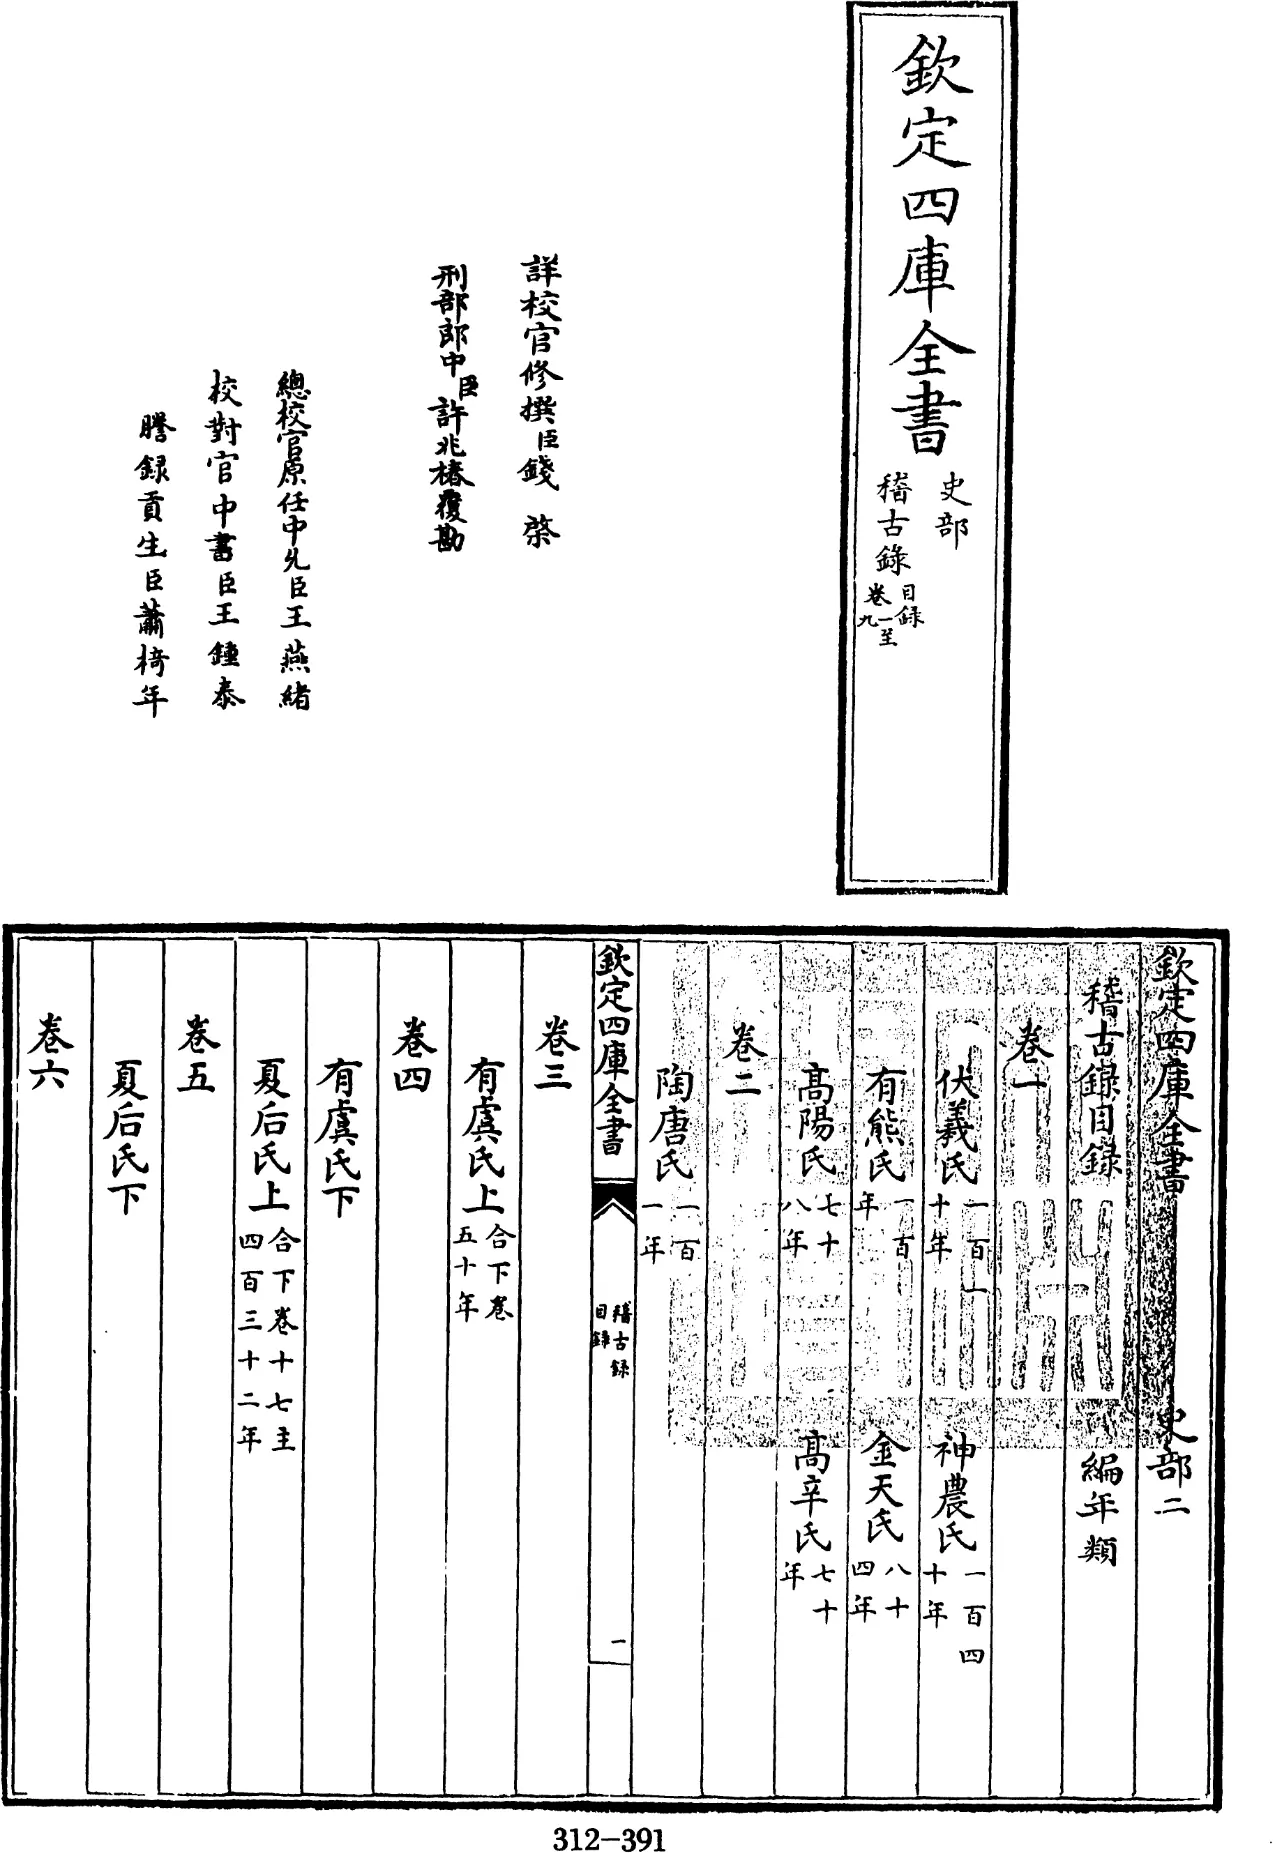 欽定四庫全書
史部
稽古錄
目録
卷一至
九
詳校官修撰臣錢棨
刑部郎中臣許兆椿覆勘
總校官原任中允臣王燕緒
校對官中書臣王鍾泰
謄録貢生臣蕭椅年
欽定四庫全書 史部二
稽古録目録 編年類
卷一
伏羲氏一百一十年 神農氏一百四十年
有熊氏一百年 金天氏八十四年
高陽氏七十八年 高辛氏七十年
卷二
陶唐氏一百一年
欽定四庫全書
稽古録
目録
一
卷三
有虞氏上合下卷五十年
卷四
有虞氏下
夏后氏上合下卷十七主四百三十二年
卷五
夏后氏下
卷六
312-391